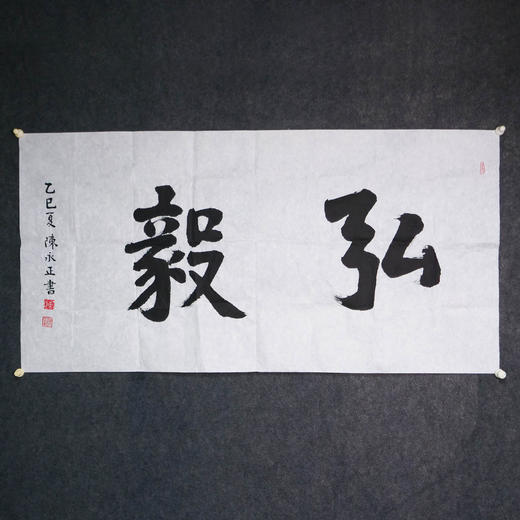 弘毅
乙巳夏 陳永正書